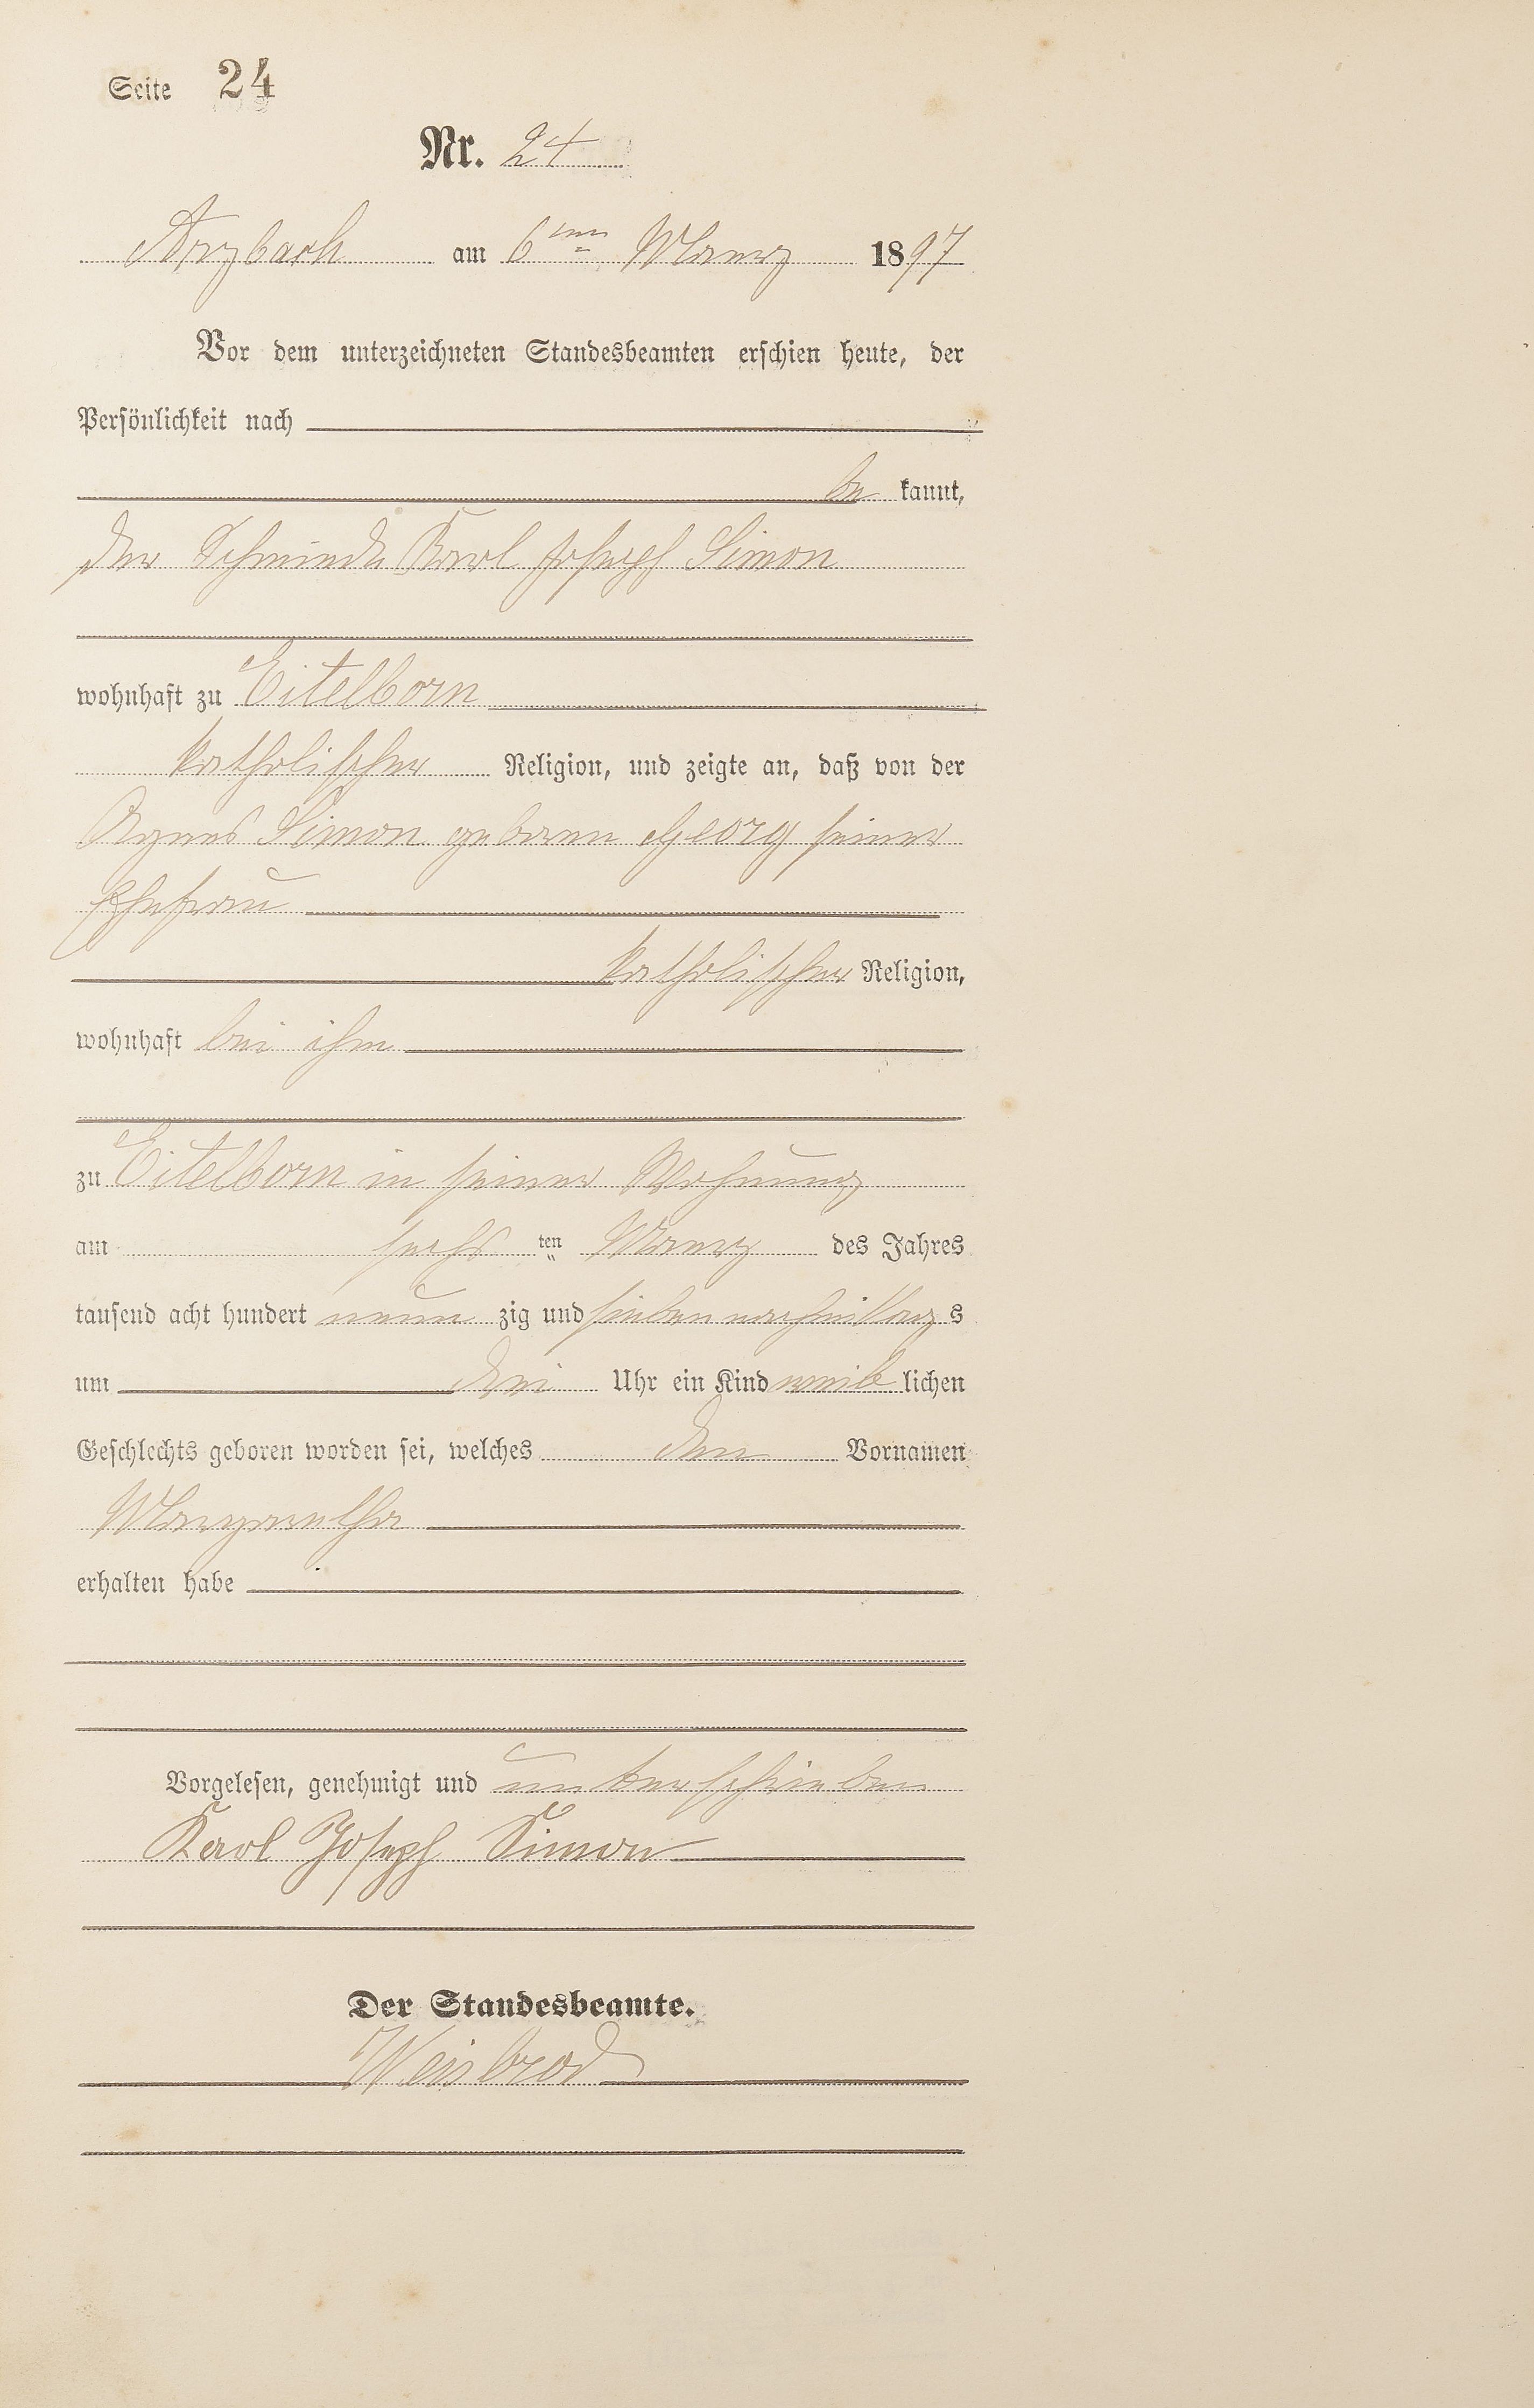 Seite 24
Nr. 24
Arzbach am 6ten Maerz 1897
Vor dem unterzeichneten Standesbeamten erschien heute, der
Persönlichkeit nach
be kannt,
der Schmied Karl Joseph Simon
wohnhaft zu Eitelborn
katholischer Religion, und zeigte an, daß von der
Agnes Simon geboren Georg seiner
Ehefrau
katholischer Religion,
wohnhaft bei ihm
zu Eitelborn in seiner Wohnung
am sechs ten Maerz des Jahres
tausend acht hundert neun zig und sieben nachmittag s
um drei Uhr ein Kind weib lichen
Geschlechts geboren worden sei, welches den Vornamen
Margaretha
erhalten habe
Vorgelesen, genehmigt und unterschrieben
Karl Joseph Simon
Der Standesbeamte.
Weisbrod